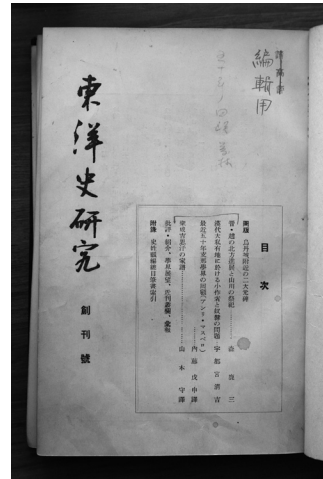 編輯用
東洋史研究
創刊號
目次
圖版 烏丹城附近の二大元碑
晉・趙の北方進展と山川の祭祀………森鹿三
漢代大私有地に於ける小作者と奴隷の問題…宇都宮清吉
最近五十年支那學界の回顧(アンリ・マスペロ)
内藤戊申譯
成吉思汗の家譜………山本守譯
批評・紹介、學界展望、近刊叢欄、彙報
附錄 史姓韻編總目筆畫索引